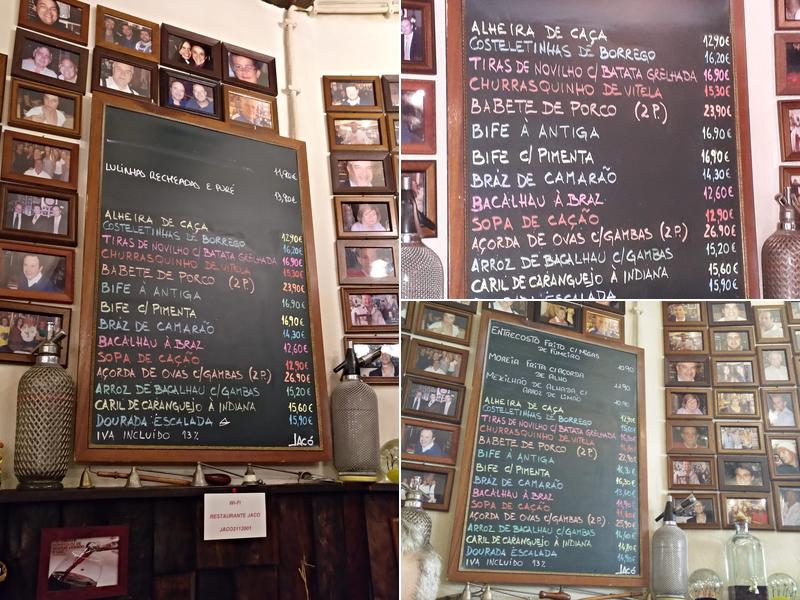 11,90€
LULINHAS RECHEADAS E PURÉ 13,90€
ALHEIRA DE CAÇA 12,90€
COSTELETINHAS DE BORREGO 16,20€
TIRAS DE NOVILHO C/BATATA GRELHADA 16,90€
CHURRASQUINHO DE VITELA 15,30€
BABETE DE PORCO (2 P.) 23,90€
BIFE À ANTIGA 16,90€
BIFE C/PIMENTA 16,90€
BRÁZ DE CAMARÃO 14,30€
BACALHAU À BRAZ 12,60€
SOPA DE CAÇÃO 12,90€
AÇORDA DE OVAS C/GAMBAS (2 P.) 26,90€
ARROZ DE BACALHAU C/GAMBAS 15,20€
CARIL DE CARANGUEJO À INDIANA 15,60€
DOURADA ESCALADA 15,90€
IVA INCLUÍDO 13%
JACÓ
Wi-Fi
RESTAURANTE JACO
JACO2112001
ALHEIRA DE CAÇA 12,90€
COSTELETINHAS DE BORREGO 16,20€
TIRAS DE NOVILHO C/BATATA GRELHADA 16,90€
CHURRASQUINHO DE VITELA 15,30€
BABETE DE PORCO (2 P.) 23,90€
BIFE À ANTIGA 16,90€
BIFE C/ PIMENTA 16,90€
BRÁZ DE CAMARÃO 14,30€
BACALHAU À BRAZ 12,60€
SOPA DE CAÇÃO 12,90€
AÇORDA DE OVAS C/GAMBAS (2 P.) 26,90€
ARROZ DE BACALHAU C/GAMBAS 15,20€
CARIL DE CARANGUEJO À INDIANA 15,60€
DOURADA ESCALADA 15,90€
ENTRECOSTO FRITO C/MIGAS
DE FUMEIRO 10,90
MOREIA FRITA C/AÇORDA
DE ALHO 11,90
MEXILHÃO DE
ARROZ DE LIMÃO 10,90
ALHEIRA DE CAÇA
COSTELETINHAS DE BORREGO
TIRAS DE NOVILHO C/BATATA GRELHADA
CHURRASQUINHO DE VITELA
BABETE DE PORCO (2 P.)
BIFE À ANTIGA
BIFE C/ PIMENTA
BRAZ DE CAMARÃO
BACALHAU À BRAZ
SOPA DE CAÇÃO
AÇORDA DE OVAS C/GAMBAS (2 P.)
ARROZ DE BACALHAU C/GAMBAS
CARIL DE CARANGUEJO À INDIANA
DOURADA ESCALADA
IVA INCLUIDO 13%
JACÓ